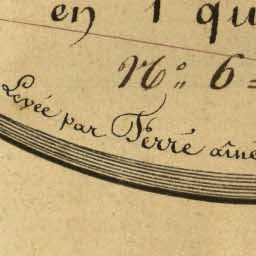 en 1 qu
N.o 6=
Levée par Ferré aîné